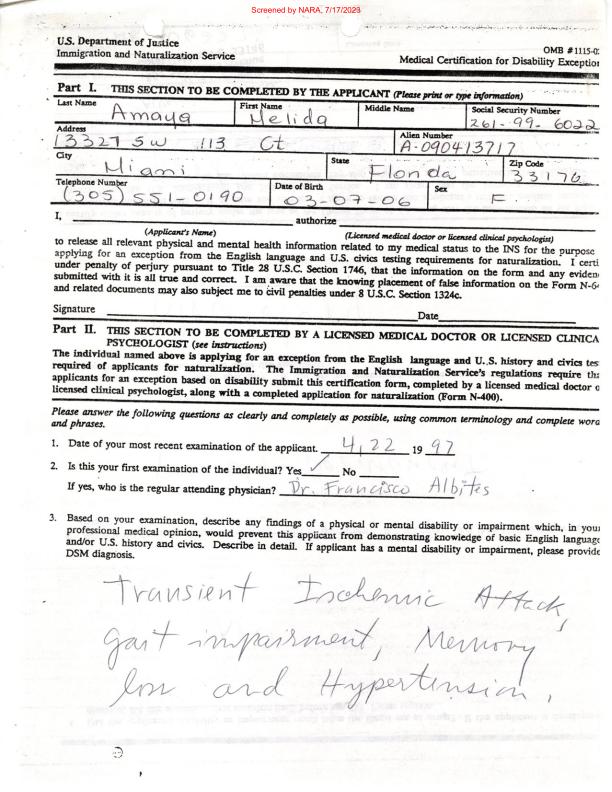 Screened by NARA, 7/17/2023
U.S. Department of Justice
Immigration and Naturalization Service
OMB #1115-0
Medical Certification for Disability Exception
Part I. THIS SECTION TO BE COMPLETED BY THE APPLICANT (Please print or type information)
Last Name First Name Middle Name Social Security Number
Amaya Melida 261-99-6022
Address Alien Number
13327 SW 113 Ct A-090413717
City State Zip Code
Miami Florida 33176
Telephone Number Date of Birth Sex
(305) 551-0190 03-07-06 F.
I, authorize
(Applicant's Name) (Licensed medical doctor or licensed clinical psychologist)
to release all relevant physical and mental health information related to my medical status to the INS for the purpose
applying for an exception from the English language and U.S. civics testing requirements for naturalization. I certi
under penalty of perjury pursuant to Title 28 U.S.C. Section 1746, that the information on the form and any eviden
submitted with it is all true and correct. I am aware that the knowing placement of false information on the Form N-6
and related documents may also subject me to civil penalties under 8 U.S.C. Section 1324c.
Signature Date
Part II. THIS SECTION TO BE COMPLETED BY A LICENSED MEDICAL DOCTOR OR LICENSED CLINICA
PSYCHOLOGIST (see instructions)
The individual named above is applying for an exception from the English language and U.S. history and civics tes
required of applicants for naturalization. The Immigration and Naturalization Service's regulations require tha
applicants for an exception based on disability submit this certification form, completed by a licensed medical doctor o
licensed clinical psychologist, along with a completed application for naturalization (Form N-400).
Please answer the following questions as clearly and completely as possible, using common terminology and complete word
and phrases.
1. Date of your most recent examination of the applicant. 4, 22 19 97
2. Is this your first examination of the individual? Yes ✓ No
If yes, who is the regular attending physician? Dr. Francisco Albites
3. Based on your examination, describe any findings of a physical or mental disability or impairment which, in your
professional medical opinion, would prevent this applicant from demonstrating knowledge of basic English language
and/or U.S. history and civics. Describe in detail. If applicant has a mental disability or impairment, please provide
DSM diagnosis.
Transient Ischemic Attack,
gait impairment, Memory
loss and Hypertension.